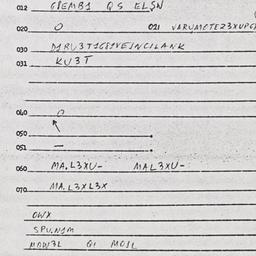 012 G8EMB1 QS ELSN
020 O 021 VARUMETEZ3XUPG
030 D1RU3T1G81VEJNCILANK
031 KU3T
040 O
050
051 —
060 MA.L3XU- MAL3XU-
070 MA.L3XL3X
OWX
SPU.N1M
QI MO1L